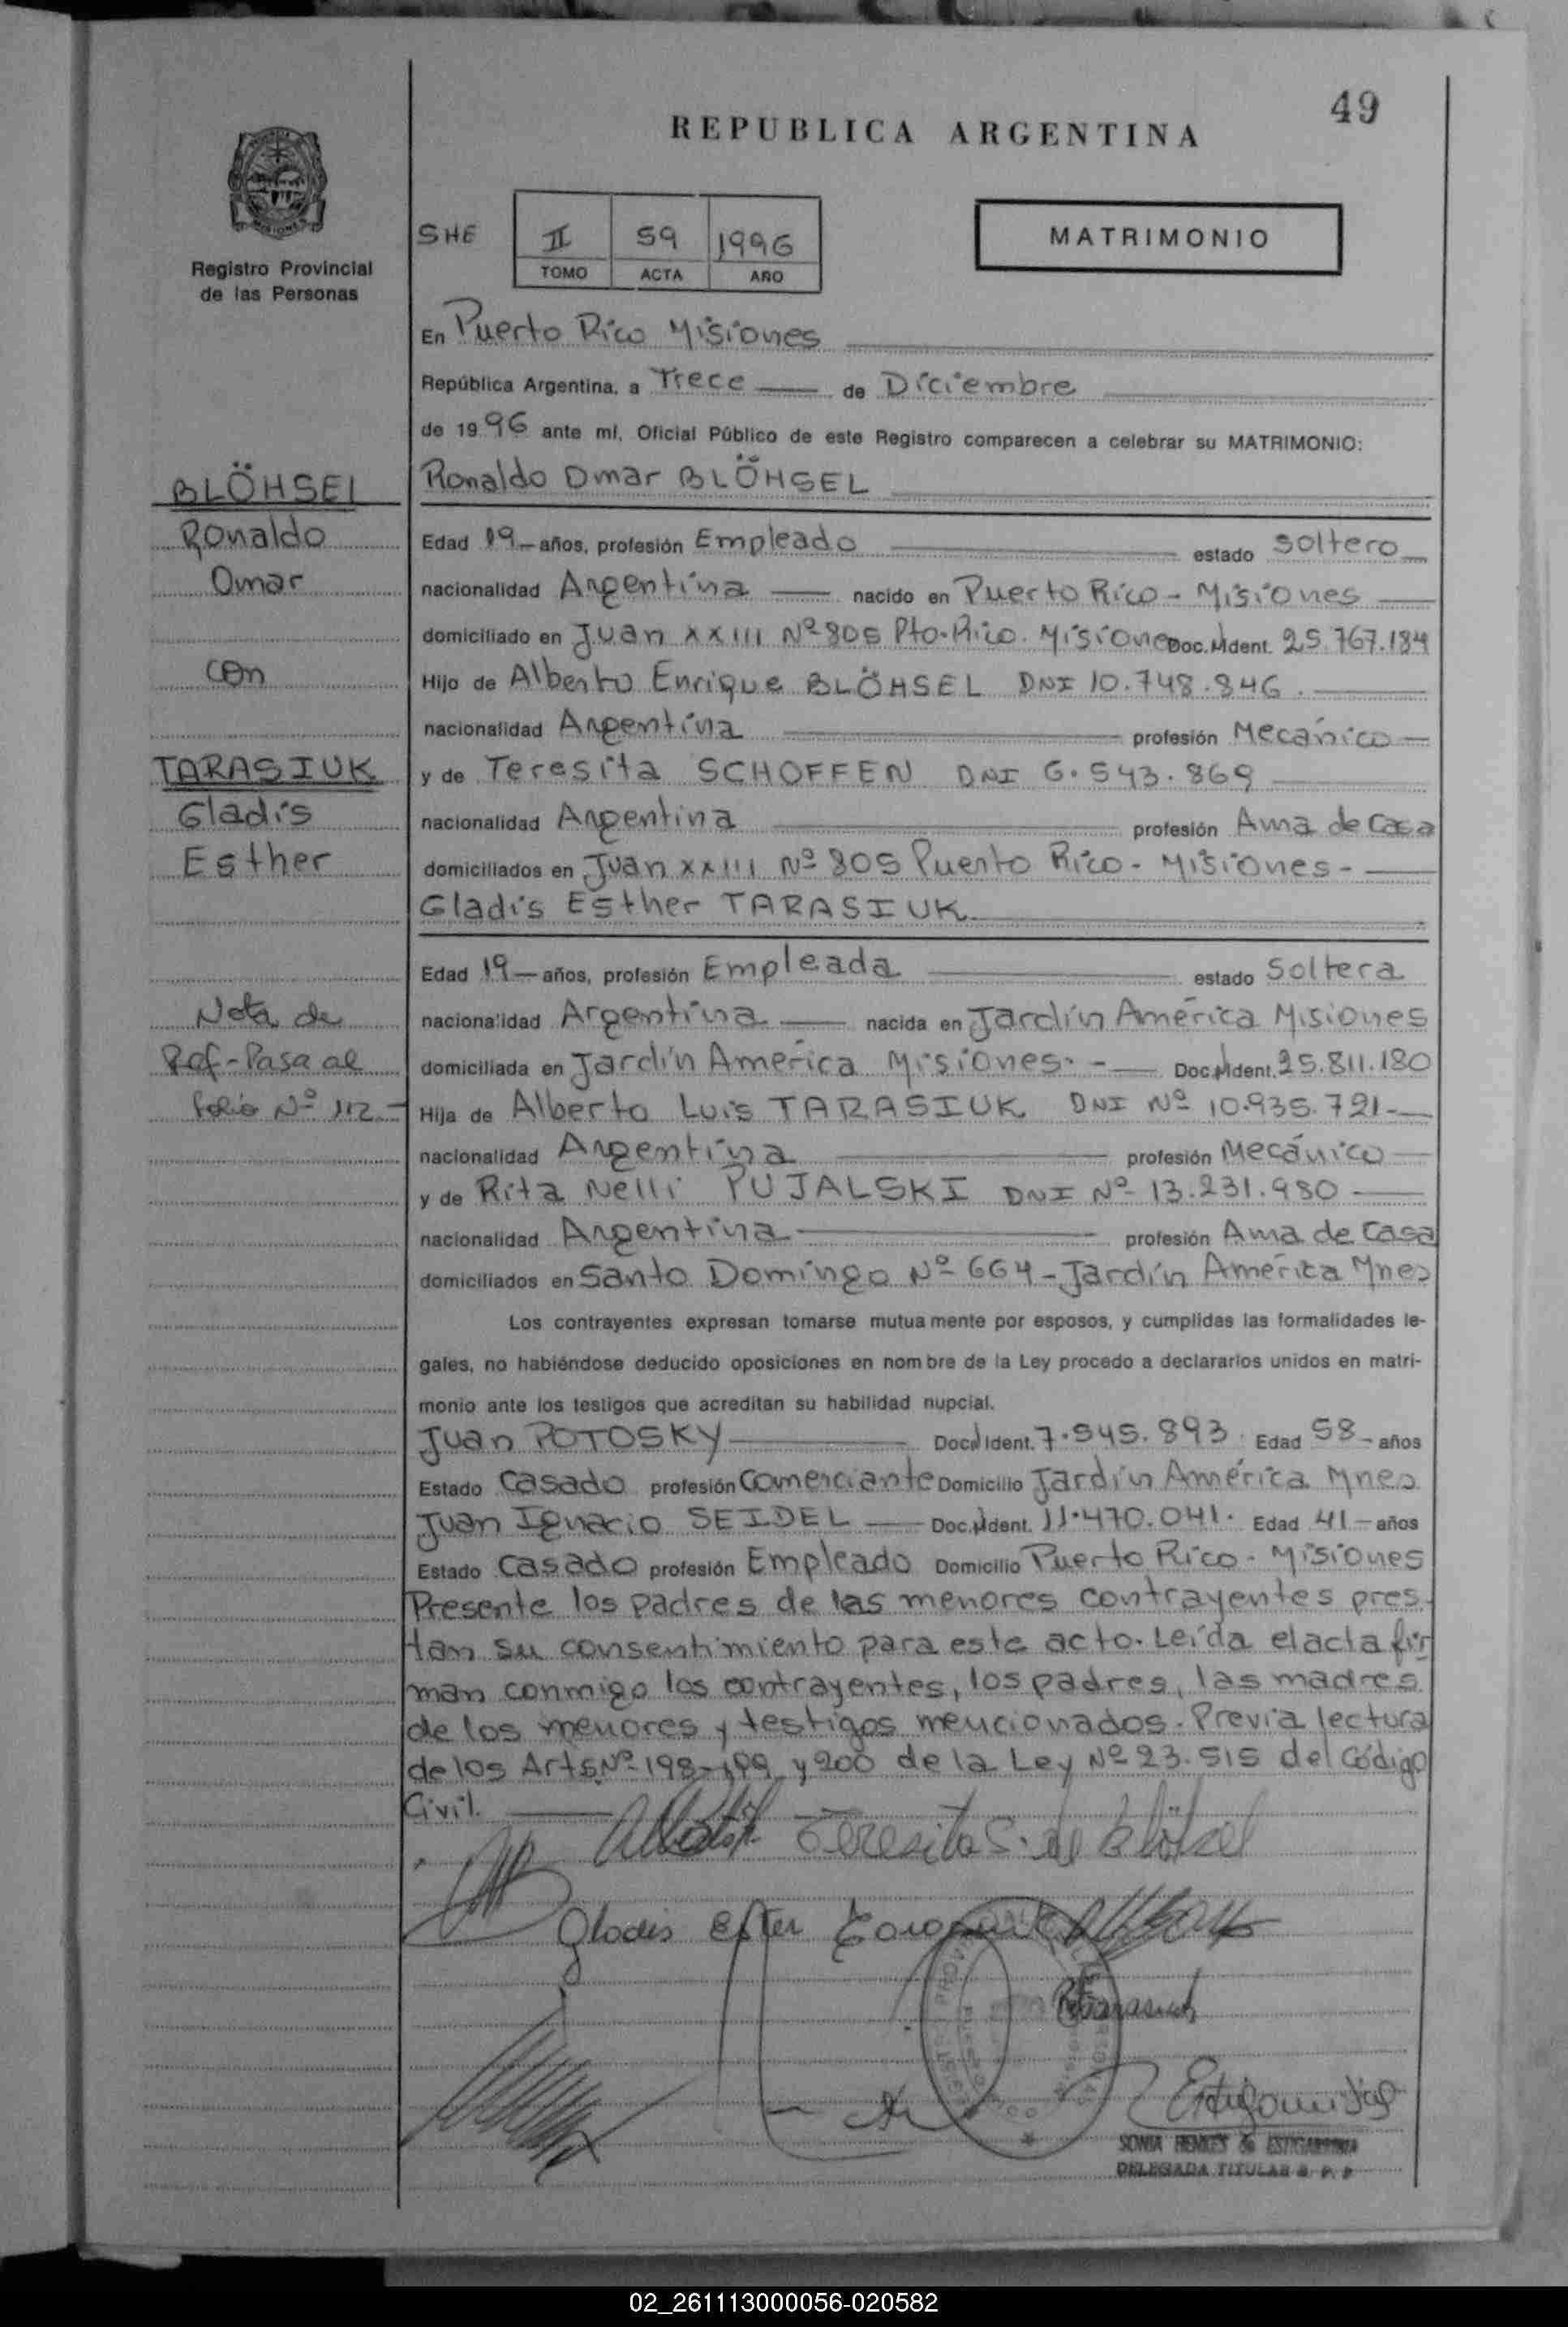 49
REPUBLICA ARGENTINA
Registro Provincial
de las Personas
SHE II 59 1996
TOMO ACTA AÑO
MATRIMONIO
En Puerto Rico Misiones
República Argentina, a Trece de Diciembre
de 1996 ante mí, Oficial Público de este Registro comparecen a celebrar su MATRIMONIO:
Ronaldo Omar BLÖHSEL
Edad 19 años, profesión Empleado estado soltero
nacionalidad Argentina nacido en Puerto Rico - Misiones
domiciliado en Juan XXIII Nº 805 Pto. Rico. Misiones Doc. Ident. 25.767.184
Hijo de Alberto Enrique BLÖHSEL DNI 10.748.846.
nacionalidad Argentina profesión Mecánico
y de Teresita SCHOFFEN DNI 6.543.869
nacionalidad Argentina profesión Ama de Casa
domiciliados en Juan XXIII Nº 805 Puerto Rico - Misiones -
Gladis Esther TARASIUK
Edad 19 años, profesión Empleada estado soltera
nacionalidad Argentina nacida en Jardín América Misiones
domiciliada en Jardín América Misiones. - Doc. Ident. 25.811.180
Hija de Alberto Luis TARASIUK DNI Nº 10.935.721.-
nacionalidad Argentina profesión Mecánico
y de Rita Nelli PUJALSKI DNI Nº 13.231.980
nacionalidad Argentina profesión Ama de Casa
domiciliados en Santo Domingo Nº 664 - Jardín América Mnes
Los contrayentes expresan tomarse mutuamente por esposos, y cumplidas las formalidades le-
gales, no habiéndose deducido oposiciones en nombre de la Ley procedo a declararlos unidos en matri-
monio ante los testigos que acreditan su habilidad nupcial.
Juan POTOSKY Doc. Ident. 7.545.893. Edad 58 años
Estado Casado profesión Comerciante Domicilio Jardín América Mnes
Juan Ignacio SEIDEL Doc. Ident. 11.470.041. Edad 41 años
Estado Casado profesión Empleado Domicilio Puerto Rico - Misiones
Presente los padres de las menores contrayentes pres-
tan su consentimiento para este acto. Leída el acta fir
man conmigo los contrayentes, los padres, las madres
de los menores y testigos mencionados. Previa lectura
de los Arts Nº 198-199 y 200 de la Ley Nº 23.515 del Código
Civil.
Teresita S. de Blöhsel
Gladis Ester Tarasiuk
Tarasiuk
SONIA HENKES de ESTIGARRIBIA
DELEGADA TITULAR R. P. P
BLÖHSEL
Ronaldo
Omar
con
TARASIUK
Gladis
Esther
Nota de
Ref - Pasa al
folio Nº 112.-
02_261113000056-020582